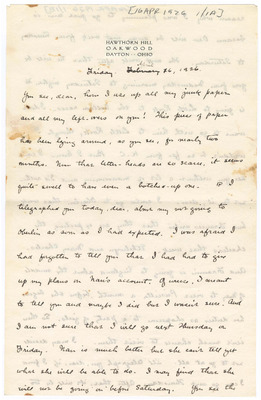 [16 APR 1926 1/1A]
HAWTHORN HILL
OAKWOOD
DAYTON · OHIO
Friday February 26, 1926
You see, dear, how I use up all my junk paper
and all my left-overs on you! This piece of paper
has been lying around, as you see, for nearly two
months. Now that letter-heads are so scarce, it seems
quite swell to have even a botched-up one. I
telegraphed you today, dear, about my not going to
Oberlin as soon as I had expected. I was afraid I
had forgotten to tell you that I had had to give
up my plans on Nan's account. Of course, I meant
to tell you and maybe I did but I wasn't sure. And
I am not sure that I will go next Thursday or
Friday. Nan is much better but she can't tell yet
what she will be able to do. I may find that she
will not be going on before Saturday. You see the